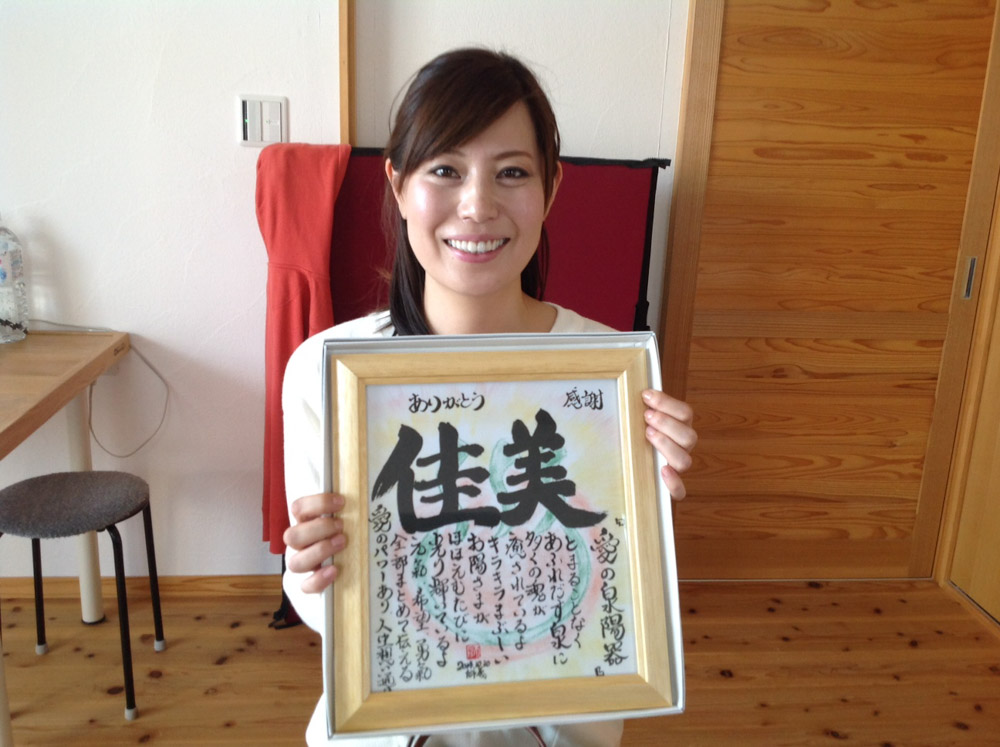 ありがとう
感謝
佳美
愛の泉陽器
とまることなく
あふれだす泉に
多くの魂が
癒されているよ
キラキラまぶしい
お陽さまが
ほほえむたびに
光り輝いているよ
元氣 希望 勇氣
全部まとめて伝える
愛のパワーあり